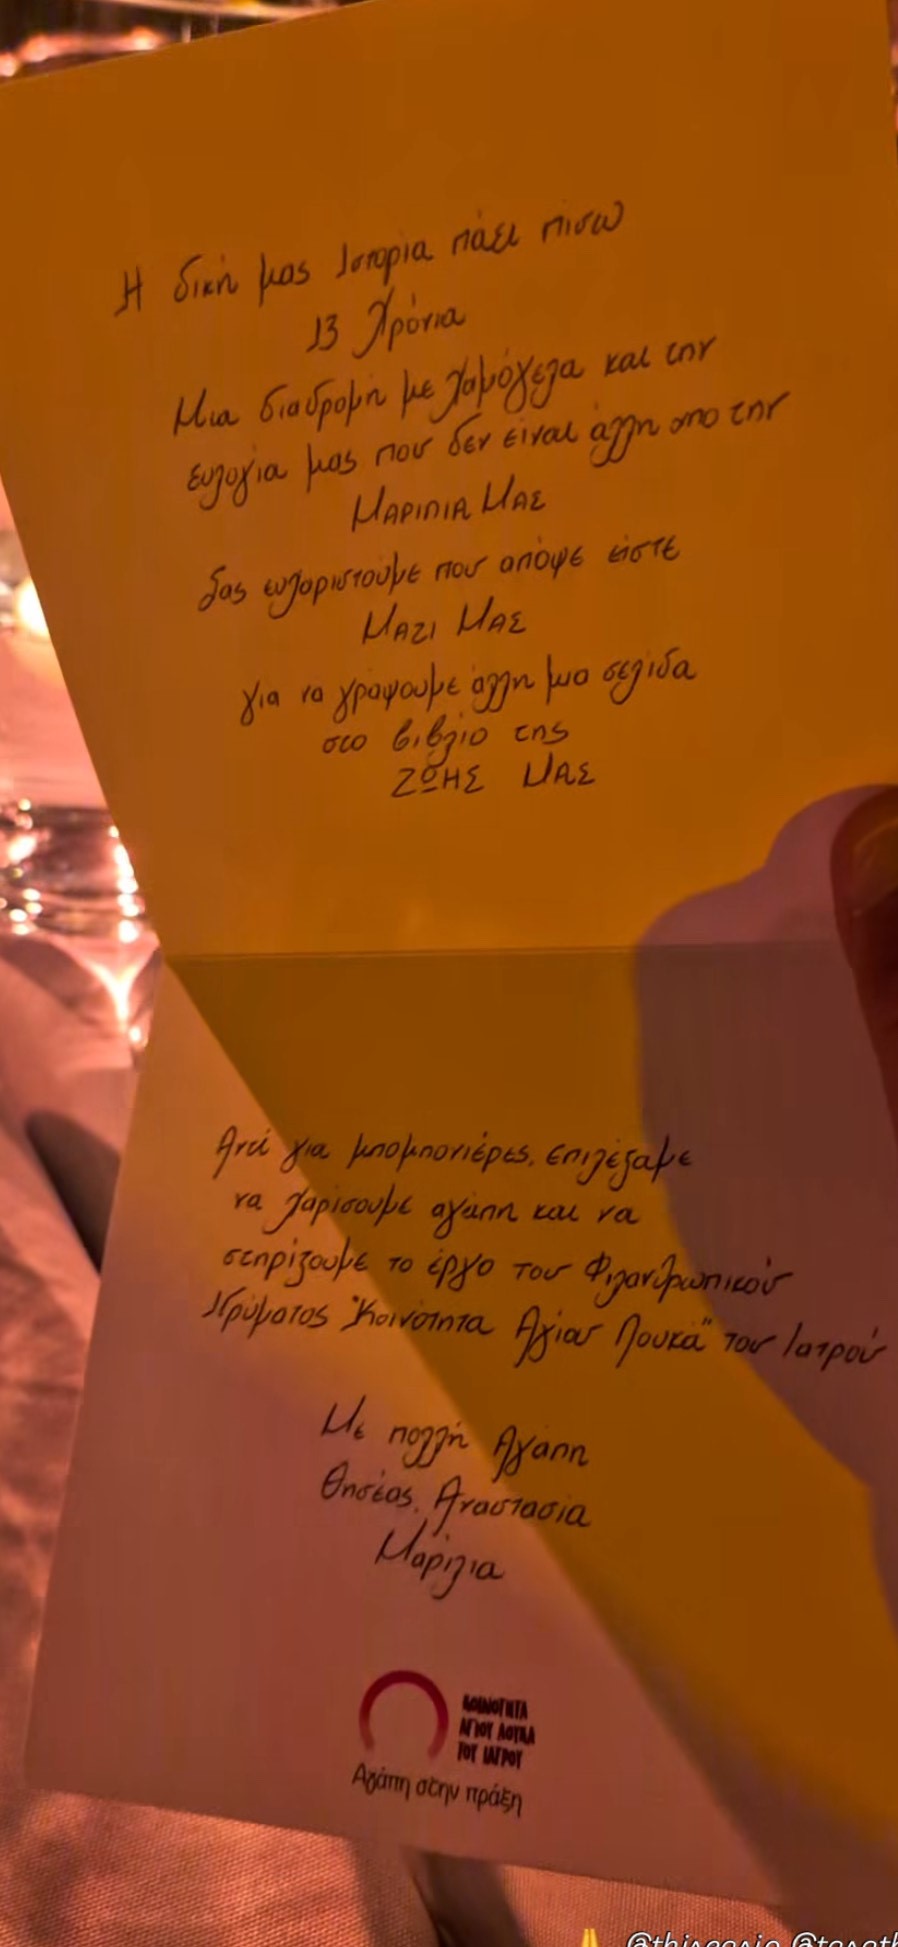 Η δική μας Ιστορία πάει πίσω
13 Χρόνια
Μια διαδρομή με χαμόγελα και την
ευλογία μας που δεν είναι άλλη απο την
ΜΑΡΙΛΙΑ ΜΑΣ
Σας ευχαριστούμε που απόψε είστε
ΜΑΖΙ ΜΑΣ
για να γράψουμε άλλη μια σελίδα
στο βιβλίο της
ΖΩΗΣ ΜΑΣ
Αντί για μπομπονιέρες, επιλέξαμε
να χαρίσουμε αγάπη και να
στηρίζουμε το έργο του Φιλανθρωπικού
Ιδρύματος "Κοινότητα Αγίου Λουκά" του Ιατρού
Με πολλή Αγάπη
Θησέας, Αναστασία
Μαρίλια
ΚΟΙΝΟΤΗΤΑ
ΑΓΙΟΥ ΛΟΥΚΑ
ΤΟΥ ΙΑΤΡΟΥ
Αγάπη στην πράξη